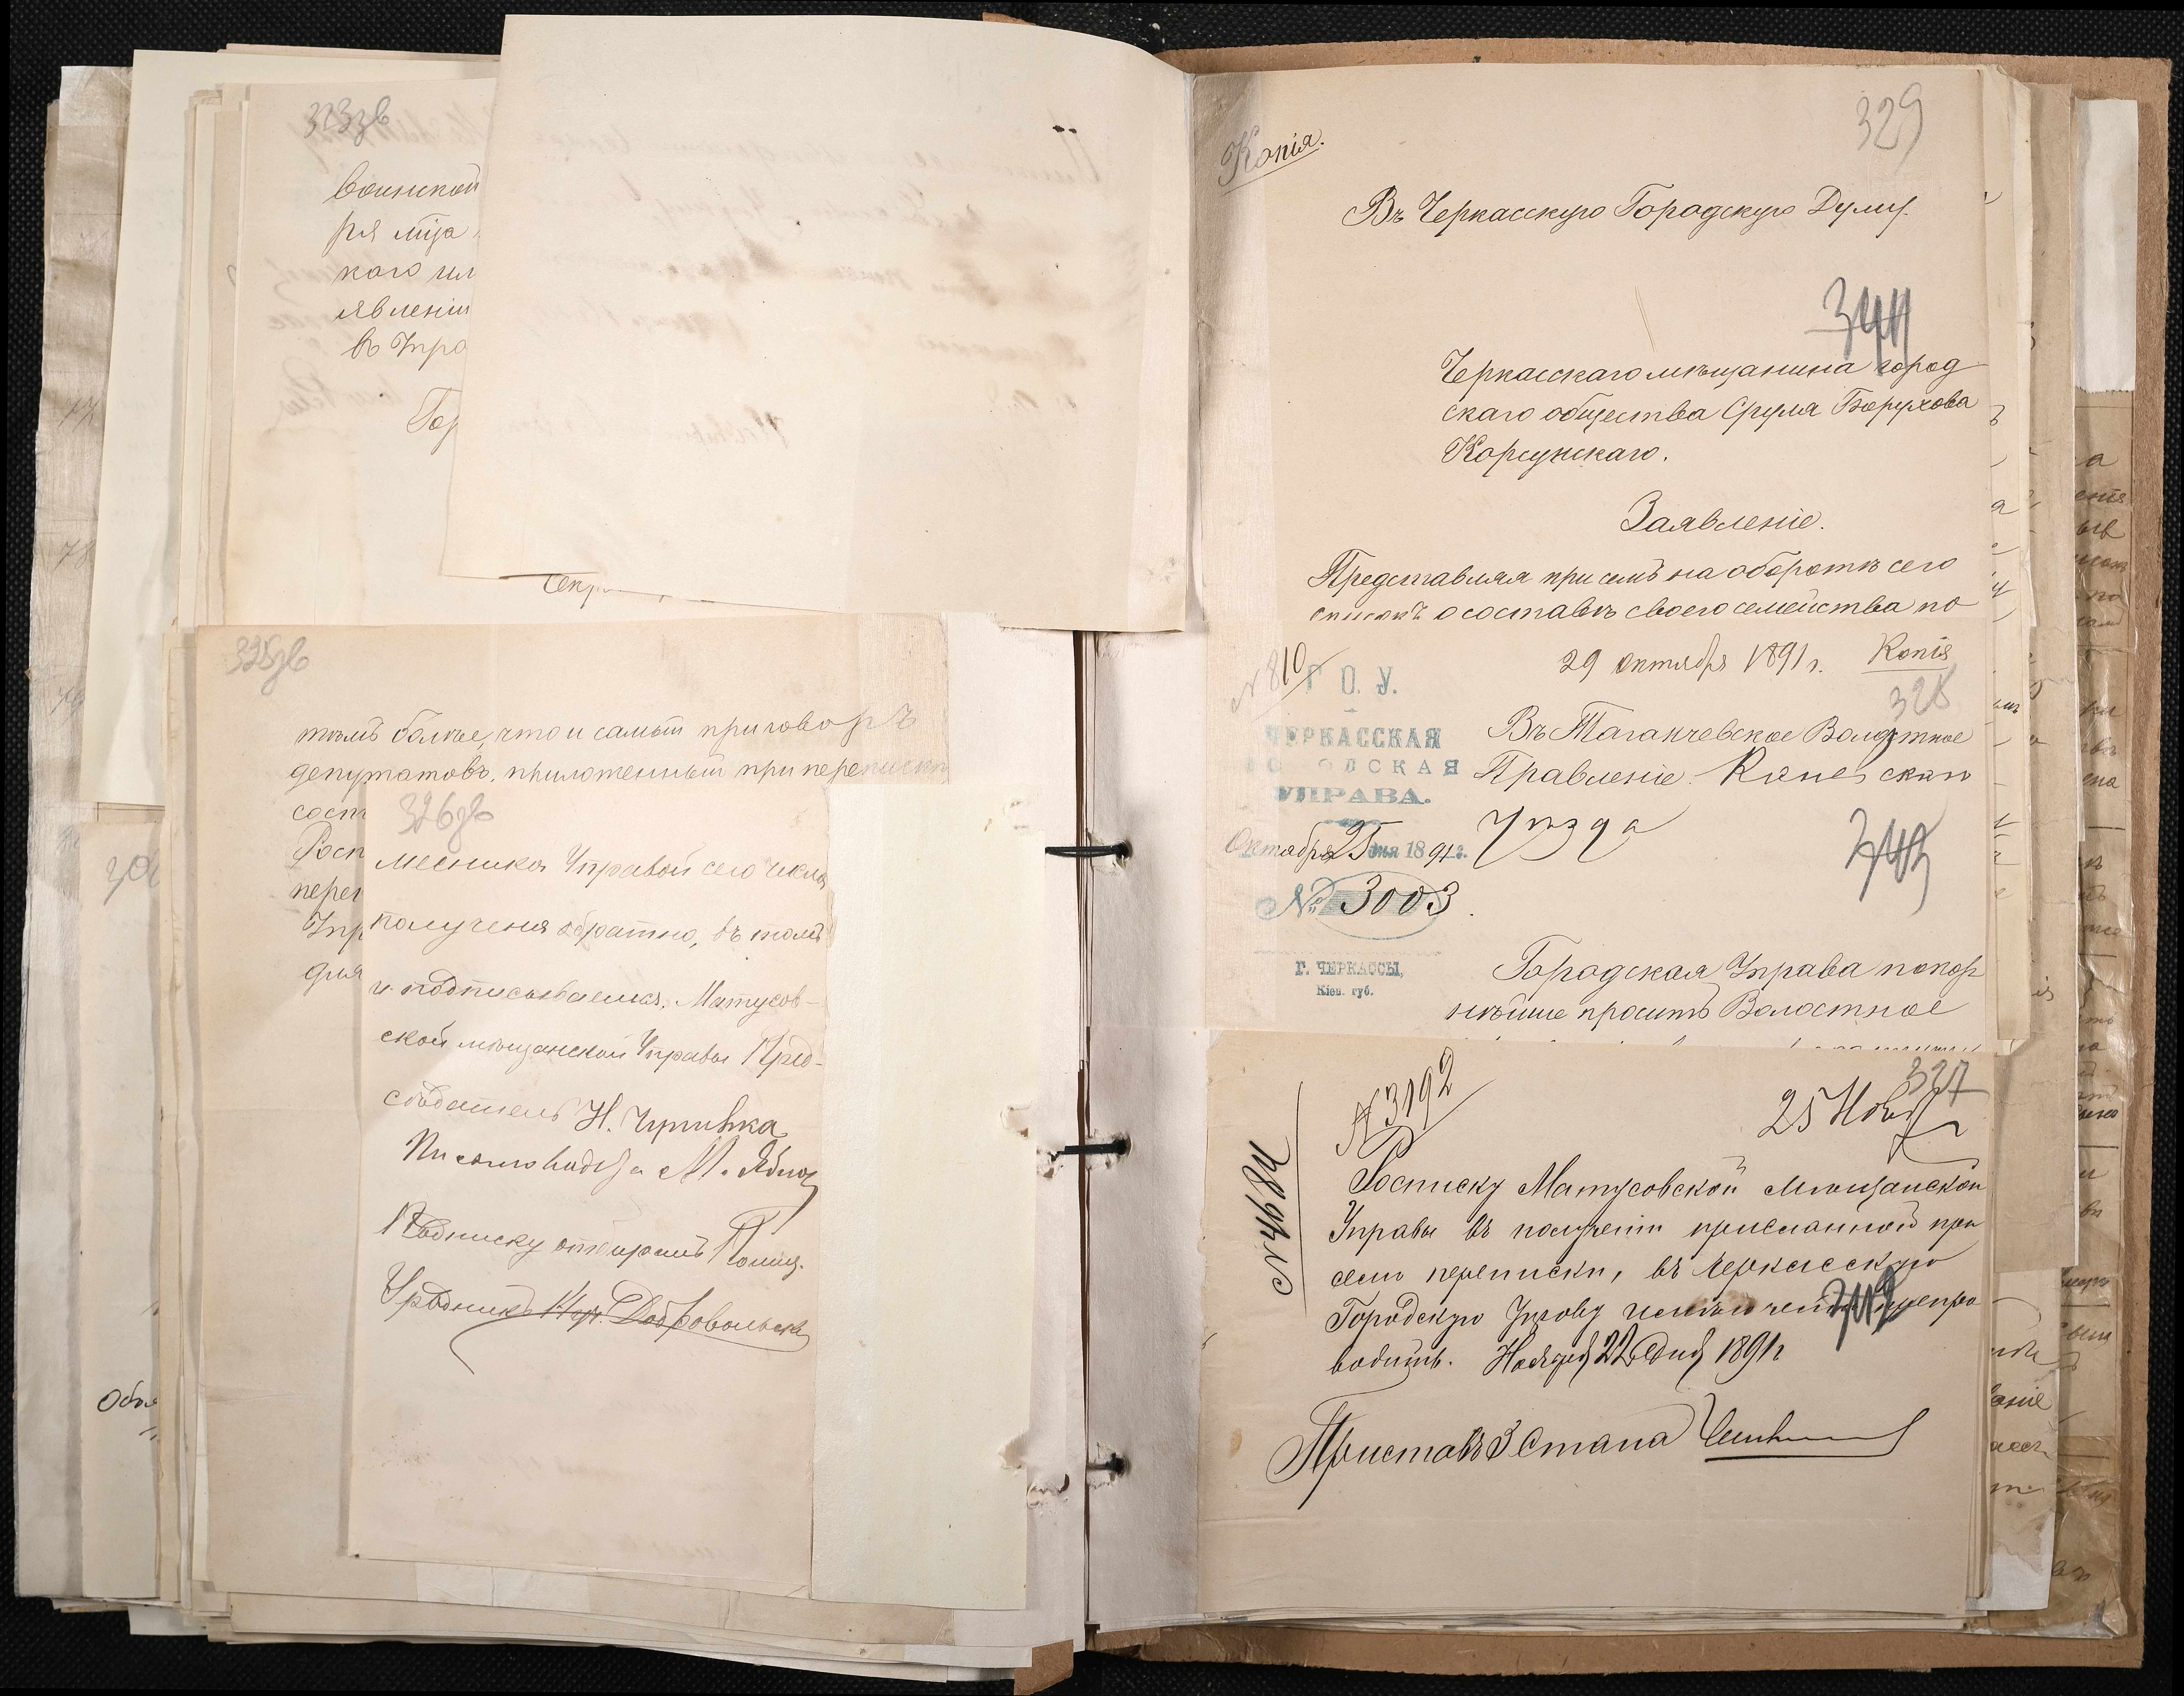 323зв
воинской
ря мѣся
кого ил
явленіи
въ Упра
Гор
Секр
325зв
тѣмъ болѣе, что и самый приговоръ
депутатовъ, приложенный при перепискѣ
сост
Росп
переп
Упр
для
326зв
месника Управой сего числа
получена обратно, въ томъ
и подписываемся, Матусов-
ской мѣщанской Управы Пред-
сѣдатель Н.
М.
Подписку отбиралъ Полиц.
Урядникъ Добровольск
Объя
329
Копія.
Въ Черкасскую Городскую Думу.
344
Черкасскаго мѣщанина город
скаго общества Сруля Борухова
Корсунскаго.
Заявленіе.
Представляя при семъ на оборотѣ сего
списокъ о составѣ своего семейства по
№ 810
29 октября 1891 г. Копія
328
Г. О. У.
ЧЕРКАССКАЯ
ГОРОДСКАЯ
УПРАВА.
Октября 25 дня 1891 г.
№ 3003.
Г. ЧЕРКАССЫ,
Кіев. губ.
Въ Таганчевское Волостное
Правленіе Каневскаго
Уѣзда
343
Городская Управа покор
нѣйше проситъ Волостное
327
№ 3192
25 Ноября
№ 4684
Росписку Матусовской Мѣщанской
Управы въ полученіи присланной при
семъ переписки, въ Черкасскую
Городскую Управу
водить. Ноября 22 дня 1891 г
Приставъ 3 Стана